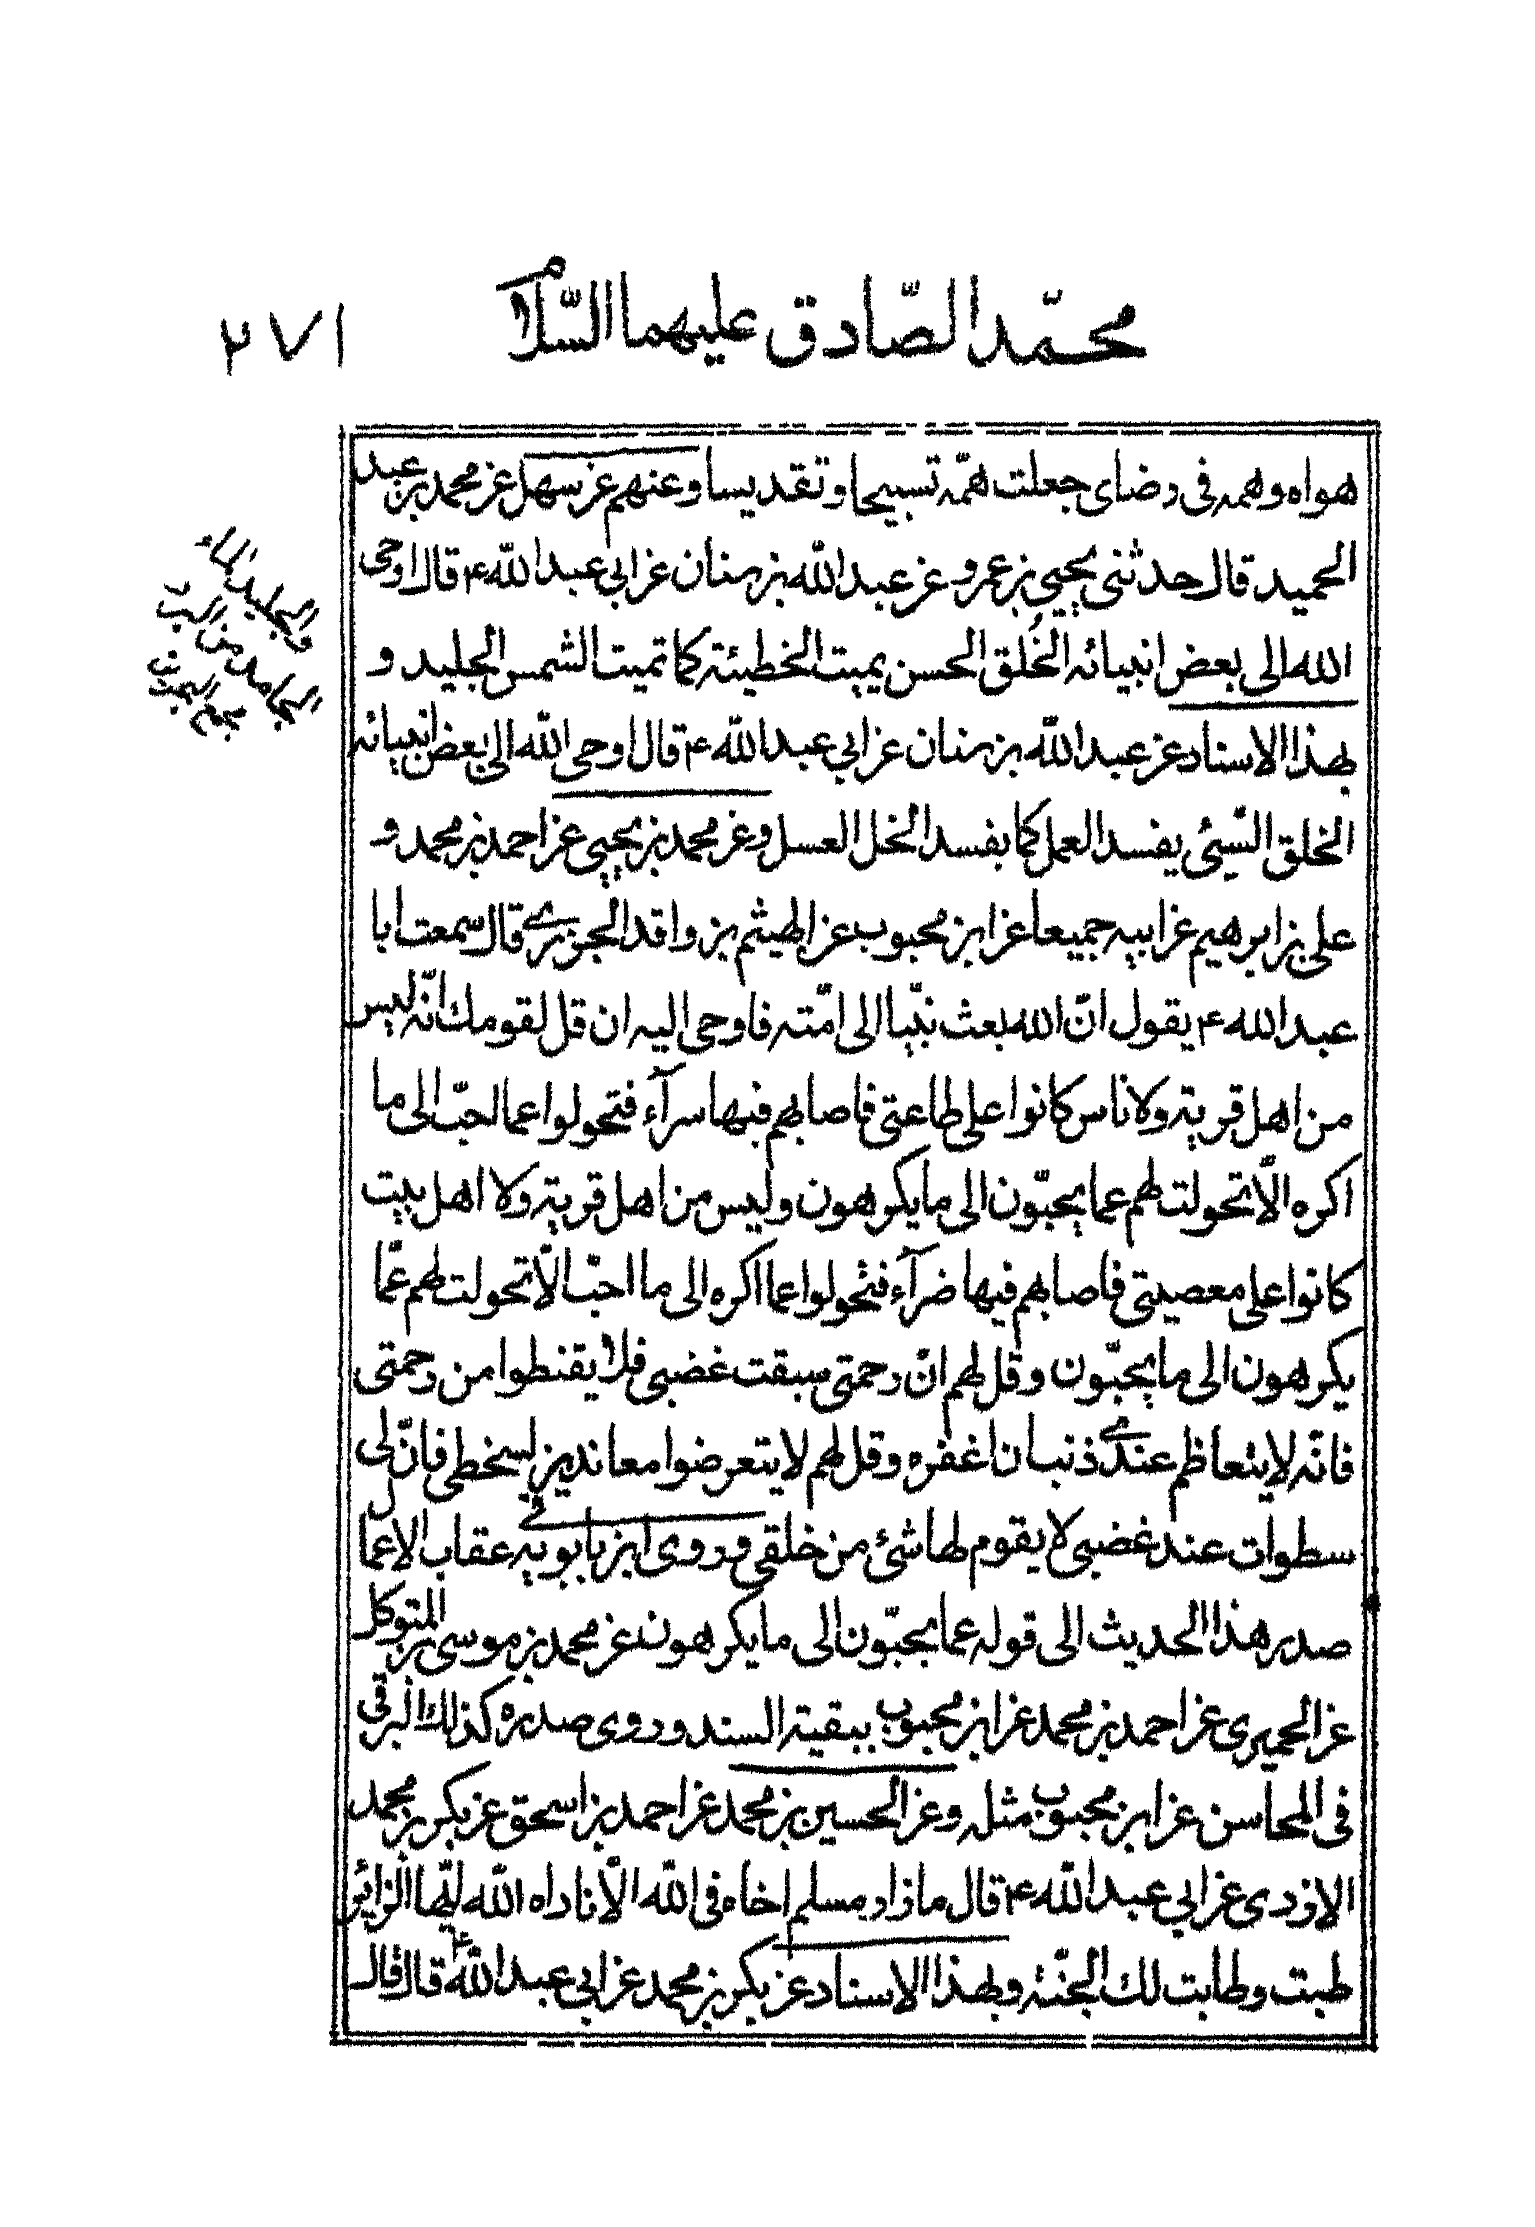 محمّد الصّادق عليهما السّلام
٢٧١
هواه وهمه فى رضاى جعلت همّه تسبيحا وتقديسا وعنهم عن سهل عن محمد بن عبد
الحميد قال حدثنى يحيى بن عمرو عن عبد الله بن سنان عن ابي عبد الله ع قال اوحى
الله الى بعض انبيائه الخُلق الحسن يميت الخطيئة كما تميت الشمس الجليد و
بهذا الاسناد عن عبد الله بن سنان عن ابي عبد الله ع قال اوحى الله الى بعض انبيائه
الخلق السّيئ يفسد العمل كما يفسد الخل العسل وعن محمد بن يحيى عن احمد بن محمد و
على بن ابرهيم عن ابيه جميعا عن ابن محبوب عن الهيثم بن واقد الجزرى قال سمعت ابا
عبد الله ع يقول انّ الله بعث نبيّا الى امّته فاوحى اليه ان قل لقومك انّه ليس
من اهل قرية ولا ناس كانوا على طاعتى فاصابهم فيها سرآء فتحولوا عما احبّ الى ما
اكره الّا تحولت لهم عما يحبّون الى ما يكرهون وليس من اهل قرية ولا اهل بيت
كانوا على معصيتى فاصابهم فيها ضرآء فتحولوا عما اكره الى ما احبّ الّا تحولت لهم عمّا
يكرهون الى ما يحبّون وقل لهم انّ رحمتى سبقت غضبى فلا يقنطوا من رحمتى
فانّه لا يتعاظم عندى ذنب ان اغفره وقل لهم لا يتعرضوا معاندين لسخطى فانّ لى
سطوات عند غضبى لا يقوم لها شئ من خلقى وروى ابن بابويه فى عقاب الاعمال
صدر هذا الحديث الى قوله عما يحبّون الى ما يكرهون عن محمد بن موسى بن المتوكل
عن الحميرى عن احمد بن محمد عن ابن محبوب ببقية السند وروى صدره كذلك البرقى
فى المحاسن عن ابن محبوب مثله وعن الحسين بن محمد عن احمد بن اسحق عن بكر بن محمد
الازدى عن ابي عبد الله ع قال ما زار مسلم اخاه فى الله الّا ناداه الله ايّها الزاير
طبت وطابت لك الجنّة وبهذا الاسناد عن بكر بن محمد عن ابي عبد الله ع قال قال